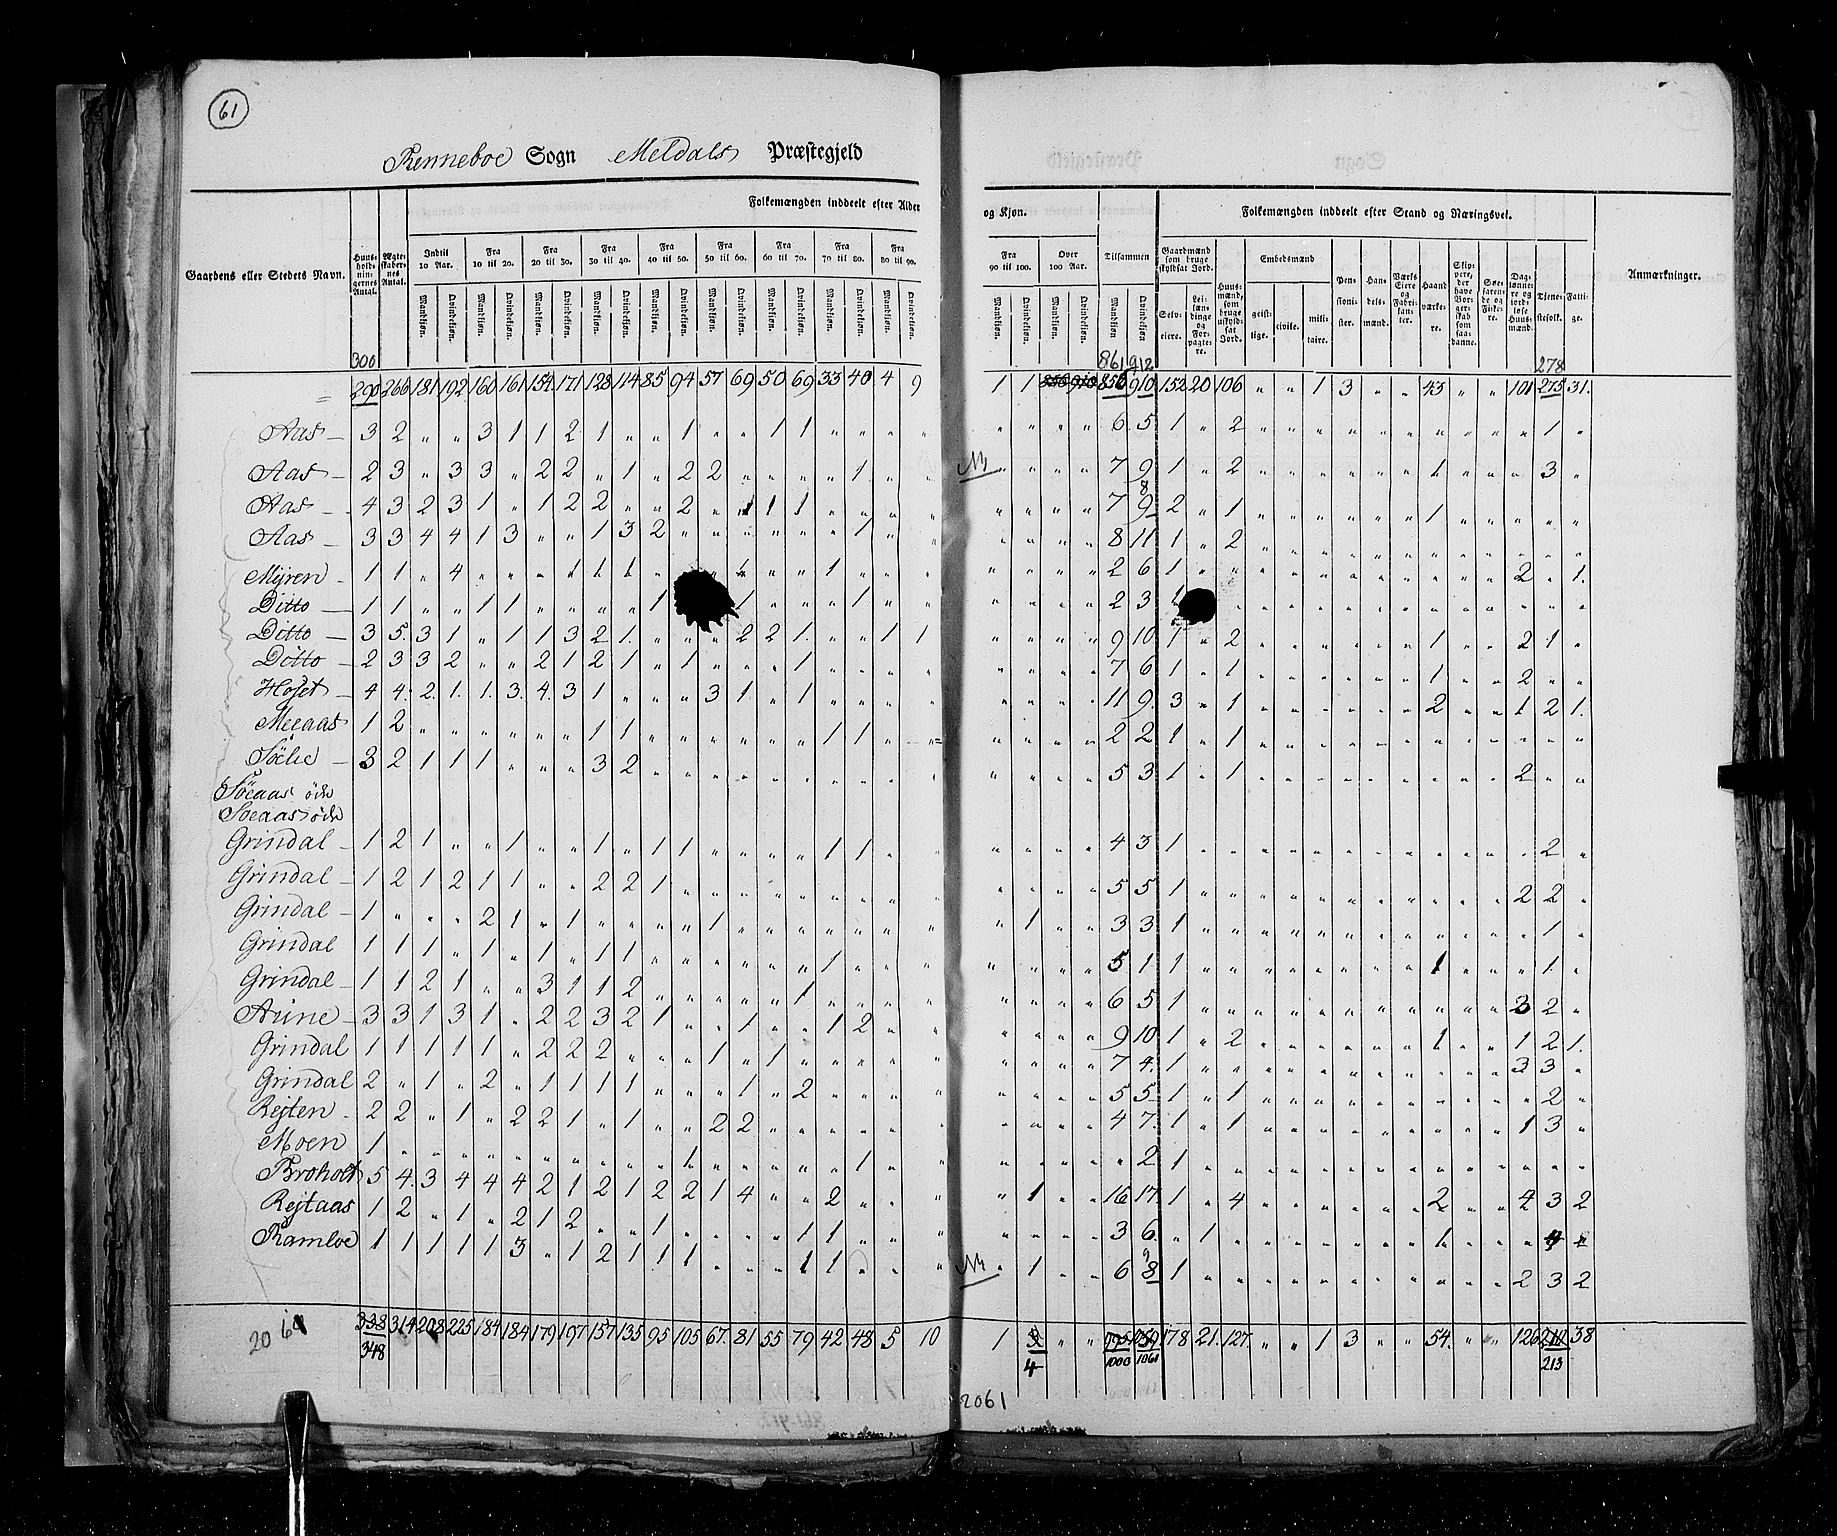 61
Renneboe Sogn Meldals Præstegjeld
Folkemængden inddeelt efter Alder og Kjøn.
Folkemængden inddeelt efter Stand og Næringsvei.
Gaardens eller Stedets Navn.
Huus-holdningernes Antal.
Ægteskabernes Antal.
Indtil 10 Aar.
Fra 10 til 20.
Fra 20 til 30.
Fra 30 til 40.
Fra 40 til 50.
Fra 50 til 60.
Fra 60 til 70.
Fra 70 til 80.
Fra 80 til 90.
Fra 90 til 100.
Over 100 Aar.
Tilsammen
Mandkjøn. Qvindekjøn.
Gaardmænd som bruge skyldsat Jord.
Selveiere.
Leilændinge og Forpagtere.
Huusmænd, som bruge uskyldsat Jord.
Embedsmænd
geistlige. civile. militaire.
Pensionister.
Handelsmænd.
Værks Eiere og Fabrikanter.
Haandværkere.
Skippere, der have Borgerskab som saadanne.
Søefarende og Fiskere.
Daglønnere og jordløse Huusmænd.
Tjenestefolk.
Fattige.
Anmærkninger.
300 861 912 278
290 266 181 192 160 161 154 171 128 114 85 94 57 69 50 69 33 40 4 9 1 1 856 910 152 20 106 " " 1 3 " " 43 " " 101 275 31.
Aas 3 2 " " 3 1 1 2 1 " " 1 " " 1 1 " " " " " " " " 6 5 1 " 2 " " " " " " " " " " 1 "
Aas 2 3 " 3 3 " 2 2 " 1 " 2 2 " " " " 1 " " " " " " 7 9 1 " 2 " " " " " " 1 " " " 3 "
Aas 4 3 2 3 1 " 1 2 2 " " 2 " 1 1 1 " " " " " " " " 7 9 8 2 " 1 " " " " " " 1 " " " " "
Aas 3 3 4 4 1 3 " " 1 3 2 " " " " " " 1 " " " " " " 8 11 1 " 2 " " " " " " " " " " " "
Myren 1 1 " 4 " " " 1 1 1 " " 1 " " 1 " " " " " " " 2 6 1 " " " " " " " " " " " 2 " 1.
Ditto 1 1 " " 1 1 " " " " 1 1 " " " 1 " " " " " " 2 3 1 " " " " " " " " " " " " "
Ditto 3 5 3 1 " 1 1 3 2 1 " " " 2 2 1 " " 1 1 " " " " 9 10 1 " 2 " " " " " " 1 " " 2 1 "
Ditto 2 3 3 2 " " 2 1 2 1 " 1 " " " 1 " " " " " " " " 7 6 1 " 1 " " " " " " 1 " " 2 " "
Hoset 4 4 2 1 1 3 4 3 1 " " " 3 1 " 1 " " " " " " " " 11 9 3 " 1 " " " " " " 2 " " 1 2 1.
Meeaas 1 2 " " " " " " 1 1 " " " " " " 1 1 " " " " " 2 2 1 " 1 " " " " " " " " " " " "
Sölie 3 2 1 1 1 " " " 3 2 " " " " " " " " " " " " " " 5 3 1 " 1 " " " " " " " " " 2 " "
Söeaas öde
Soeaas öde
Grindal 1 2 1 " " 1 " " 1 " 1 1 " " " " 1 1 " " " " " " 4 3 1 " " " " " " " " " " " " 2 "
Grindal 1 2 1 2 1 1 " " 2 2 1 " " " " " " " " " " " " " 5 5 1 " " " " " " " " " " " 2 2 "
Grindal 1 " " " 2 1 " 1 " " " " 1 " " " " " " " " 1 " " 3 3 1 " " " " " " " " " " " " 1 "
Grindal 1 1 1 " 1 " 1 " 1 1 " " " " " " 1 " " " " " " " 5 1 1 " " " " " " " " 1 " " " 1 "
Grindal 1 1 2 1 " " 3 1 1 2 " " " " " 1 " " " " " " " " 6 5 1 " " " " " " " " " " " 3 2 "
Aune 3 3 1 3 1 " 2 2 3 2 1 " " 1 " " 1 2 " " " " " " 9 10 1 " 2 " " " " " " 1 " " 1 2 1.
Grindal 1 1 1 1 1 " 2 2 2 " " " 1 " 1 " " " " " " " " " 7 4 1 " " " " " " " " " " " 3 3 "
Grindal 2 " 1 " 2 " 1 1 1 1 " " " 1 " 2 " " " " " " " " 5 5 1 " 1 " " " " " " " " " " 2 "
Rejten 2 2 " 1 " 2 2 1 " 1 " " 2 2 " " " " " " " " " " 4 7 1 " 1 " " " " " " " " " 1 3 "
Moen 1 " " " " " " " " " " 1 " " " " " 1 " " " " " " " 2 1 " " " " " " " " " " " " " "
Broholt 5 4 3 4 4 4 2 1 2 1 2 2 1 4 " " 2 " " " " 1 " " 16 17 1 " 4 " " " " " " 2 " " 4 3 2
Rejtaas 1 2 " 1 " 2 1 2 " " 1 " " " " 1 1 " " " " " " " 3 6 " 1 " " " " " " " 1 " " "
Ramloe 1 1 1 1 1 3 " 1 2 1 1 1 " " " 1 1 " " " " 1 " " 6 8 9 1 " " " " " " " " " " " 2 3 2
2061 338 314 208 225 184 184 179 197 157 135 95 105 67 81 55 79 42 48 5 10 1 " " 178 21 127 " " 1 3 " " 54 " " 126 38
348 4 1000 1061 213
2061